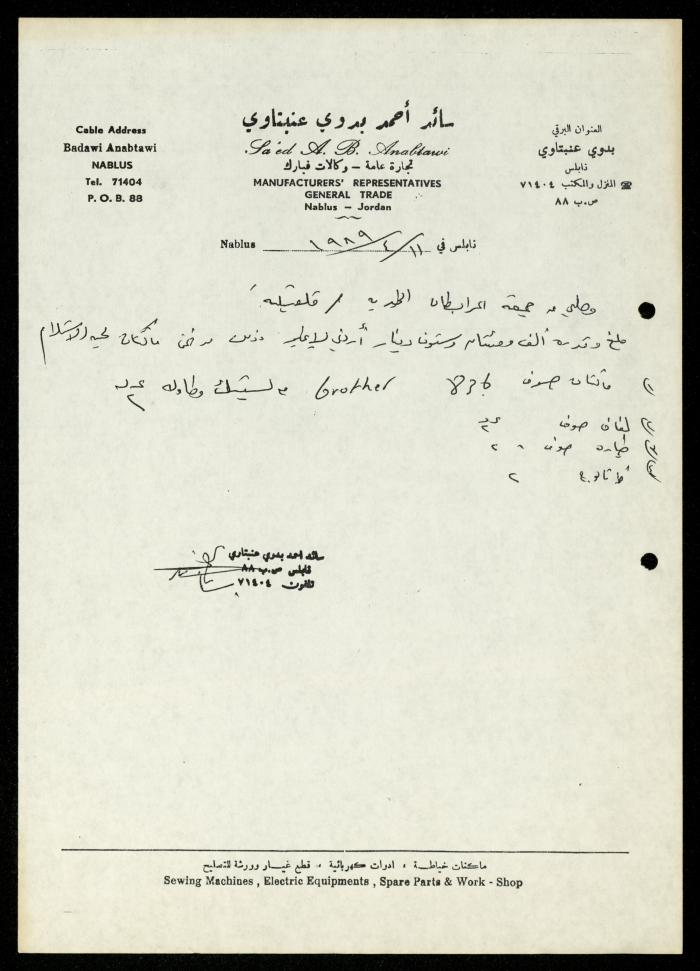 سائد أحمد بدوي عنبتاوي
Sa'ed A. B. Anabtawi
تجارة عامة - وكالات فبارك
MANUFACTURERS' REPRESENTATIVES
GENERAL TRADE
Nablus - Jordan
Cable Address
Badawi Anabtawi
NABLUS
Tel. 71404
P. O. B. 88
العنوان البرقي
بدوي عنبتاوي
نابلس
☎ المنزل والمكتب ٧١٤٠٤
ص.ب ٨٨
Nablus ١١/٤/١٩٨٩ نابلس في
وصلني من جمعية المرابطات الخيرية / قلقيلية
مبلغ وقدره ألف ومئتان وستون دينار أردني لا غير وذلك من ثمن ماكنات تحت الاستلام
١) ماكنات صوف Brother وطاولة عدد ٢
٢) صوف عدد ٢
صوف ٢
٢
سائد احمد بدوي عنبتاوي
نابلس ص.ب ٨٨
تلفون ٧١٤٠٤
ماكنات خياطة ، ادوات كهربائية ، قطع غيار وورشة للتصليح
Sewing Machines , Electric Equipments , Spare Parts & Work - Shop